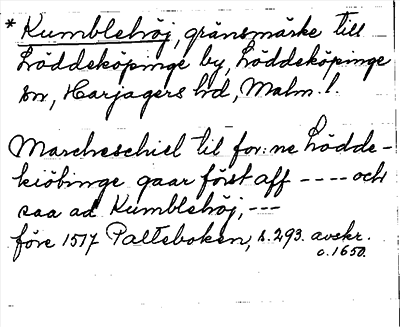 * Kumblehöj, gränsmärke till
Löddeköpinge by, Löddeköpinge
sn, Harjagers hd, Malm. l.
Marcheschiel til for:ne Lödde-
kiöbinge gaar först aff ---- och
saa ad Kumblehöj, ---
före 1517 Palteboken, s. 293. avskr.
c. 1650.